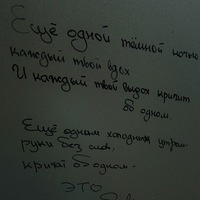 Ещё одной тёмной ночью
каждый твой вдох
И каждый твой выдох кричит
об одном.
Ещё одним холодным утром
руки без слов,
кричат об одном.
ЭТО